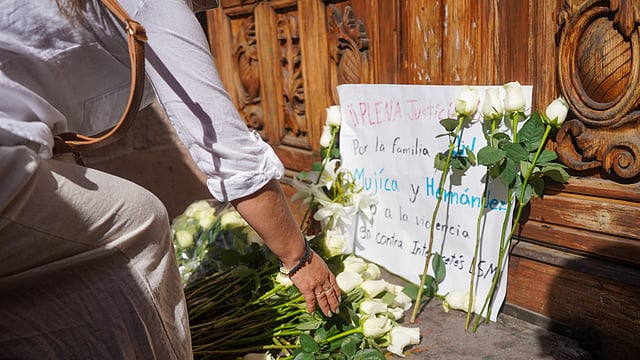 ¡¡PLENA Justicia
Por la familia
Mujica y Hernández
o a la violencia
en contra Intercets LSM